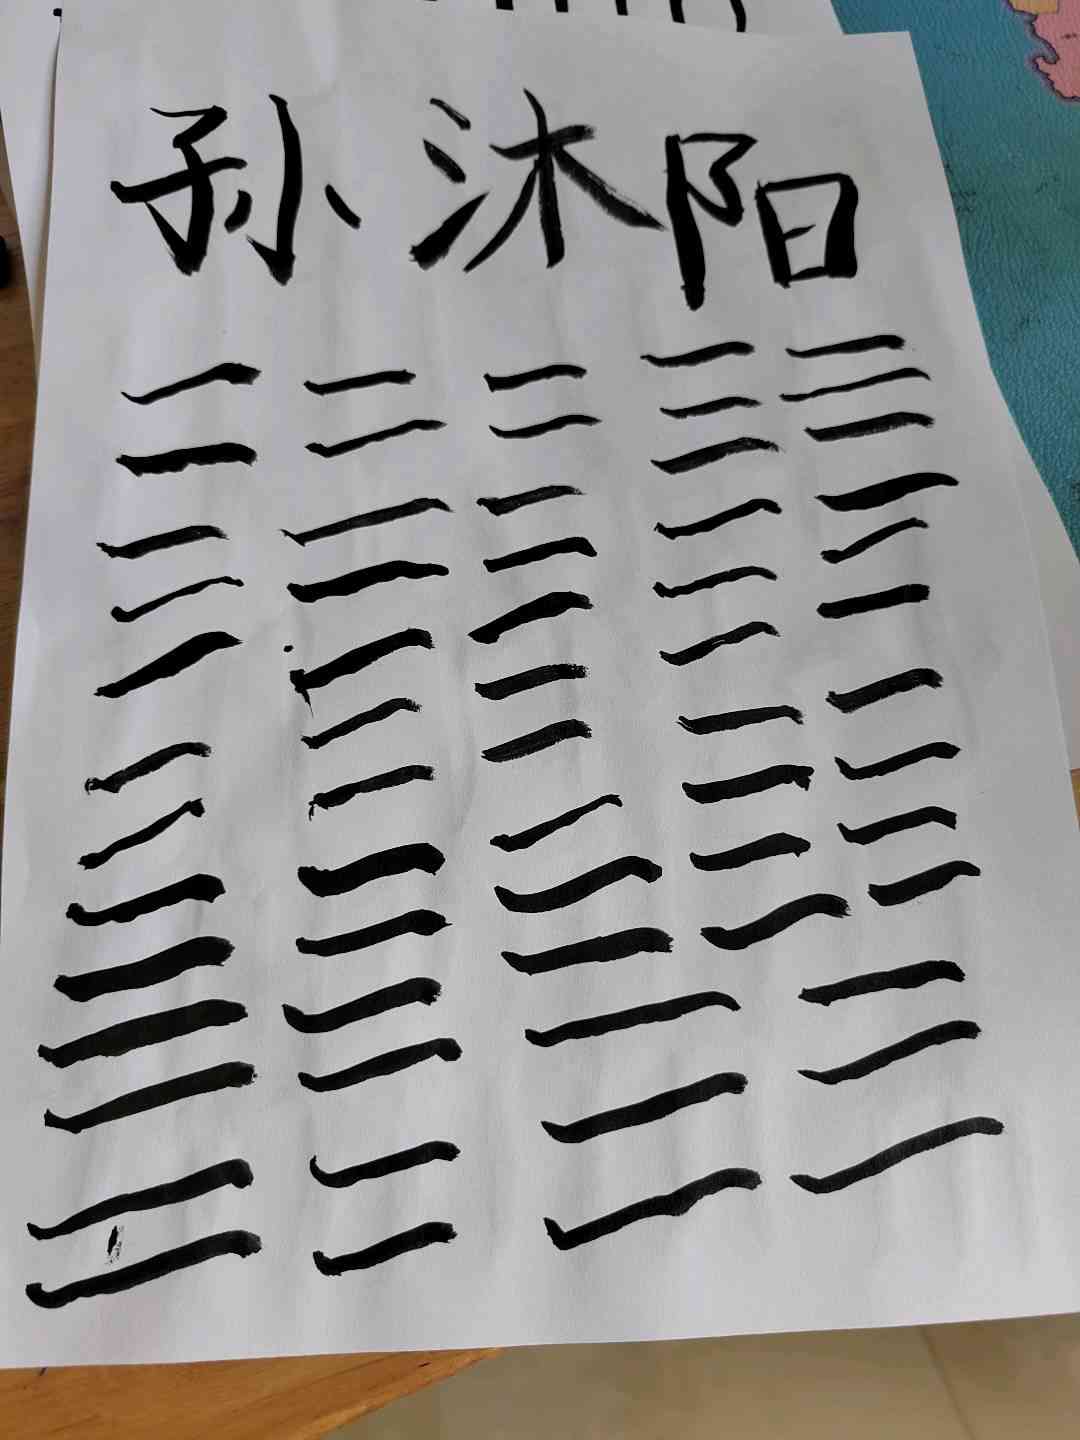 孙沐阳